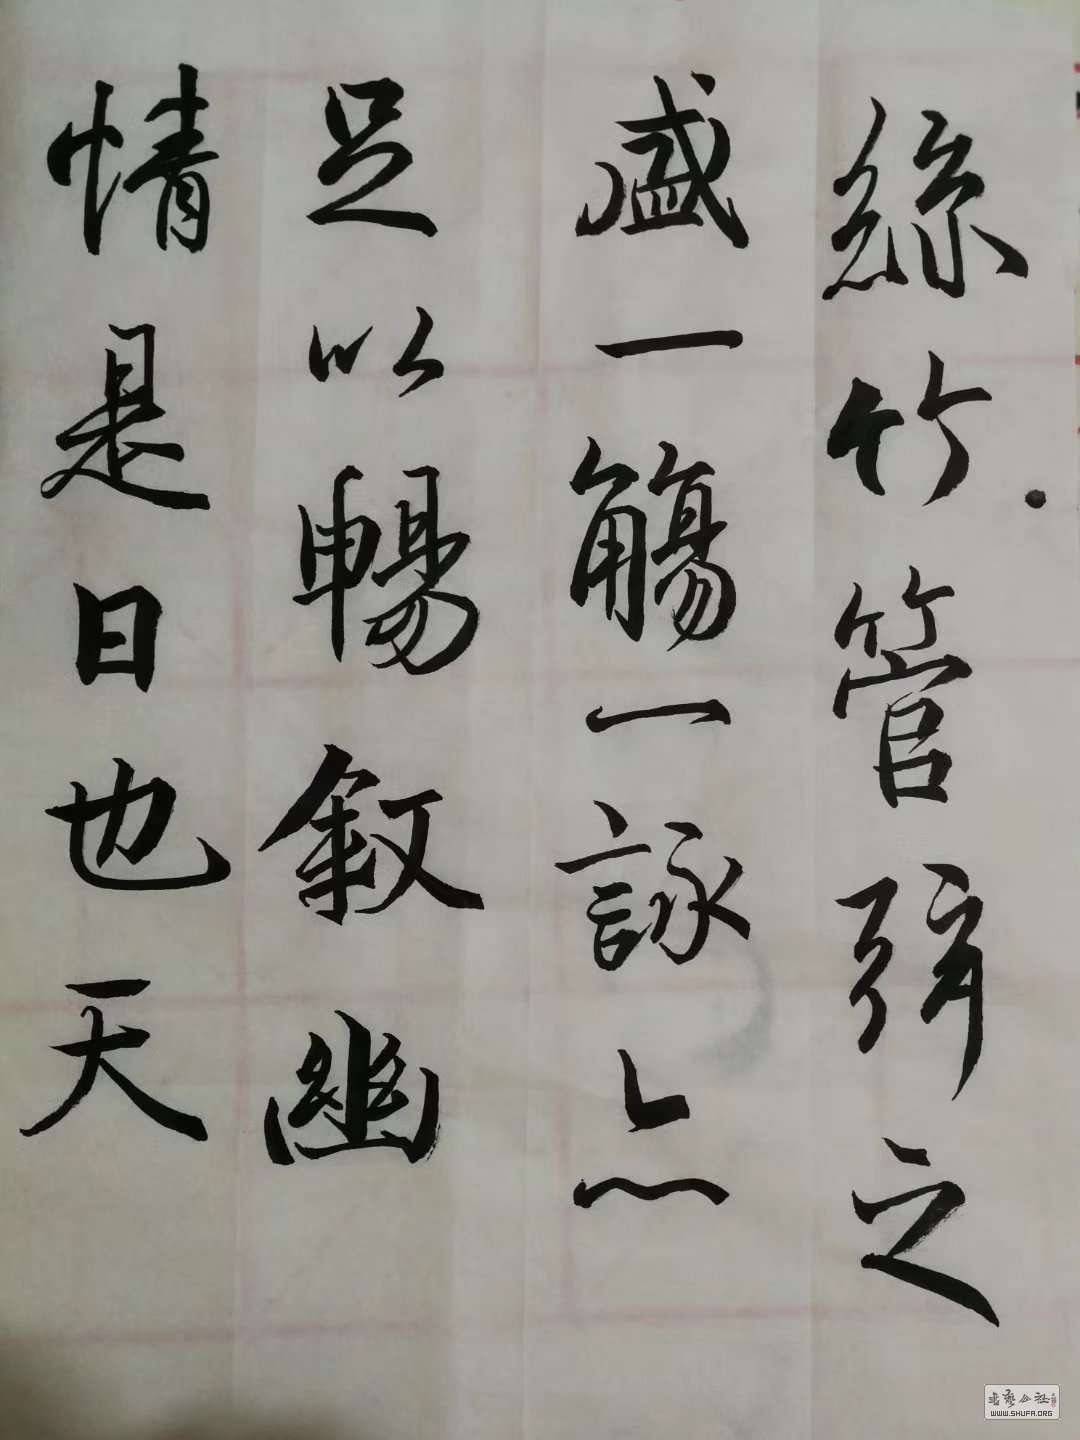 絲竹管弦之
盛一觴一詠亦
足以暢敘幽
情是日也天
书艺公社
WWW.SHUFA.ORG